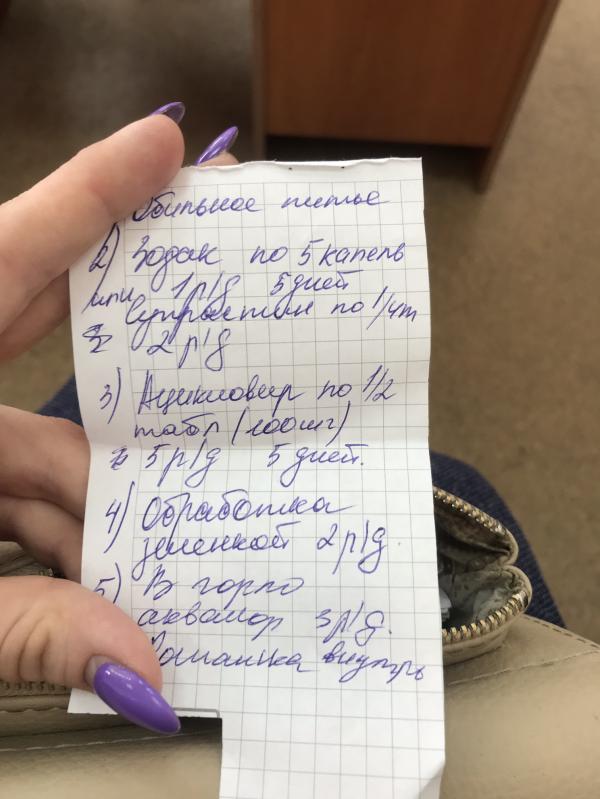 Обильное питье
2) Зодак по 5 капель
или 1 р/д 5 дней
Супрастин по 1/4т
2 р/д
3) Ацикловир по 1/2
табл (100мг)
5 р/д 5 дней.
4) Обработка
зеленкой 2 р/д.
5) В горло
аквамор 3 р/д.
Ромашка внутрь